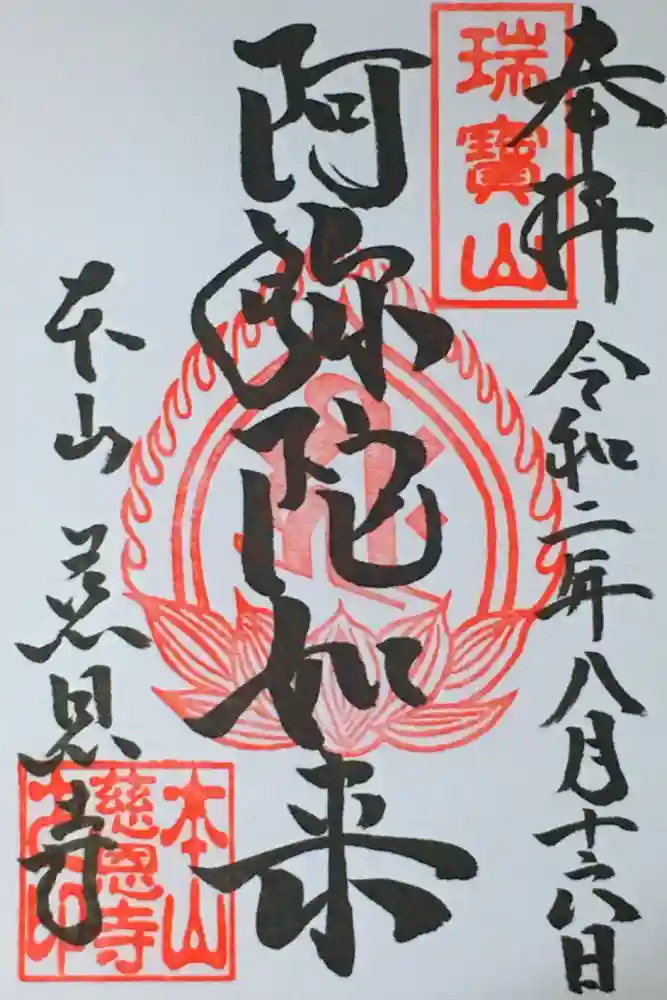 奉拝
令和二年八月十六日
瑞寶山
阿弥陀如来
本山 慈恩寺
本山
慈恩寺